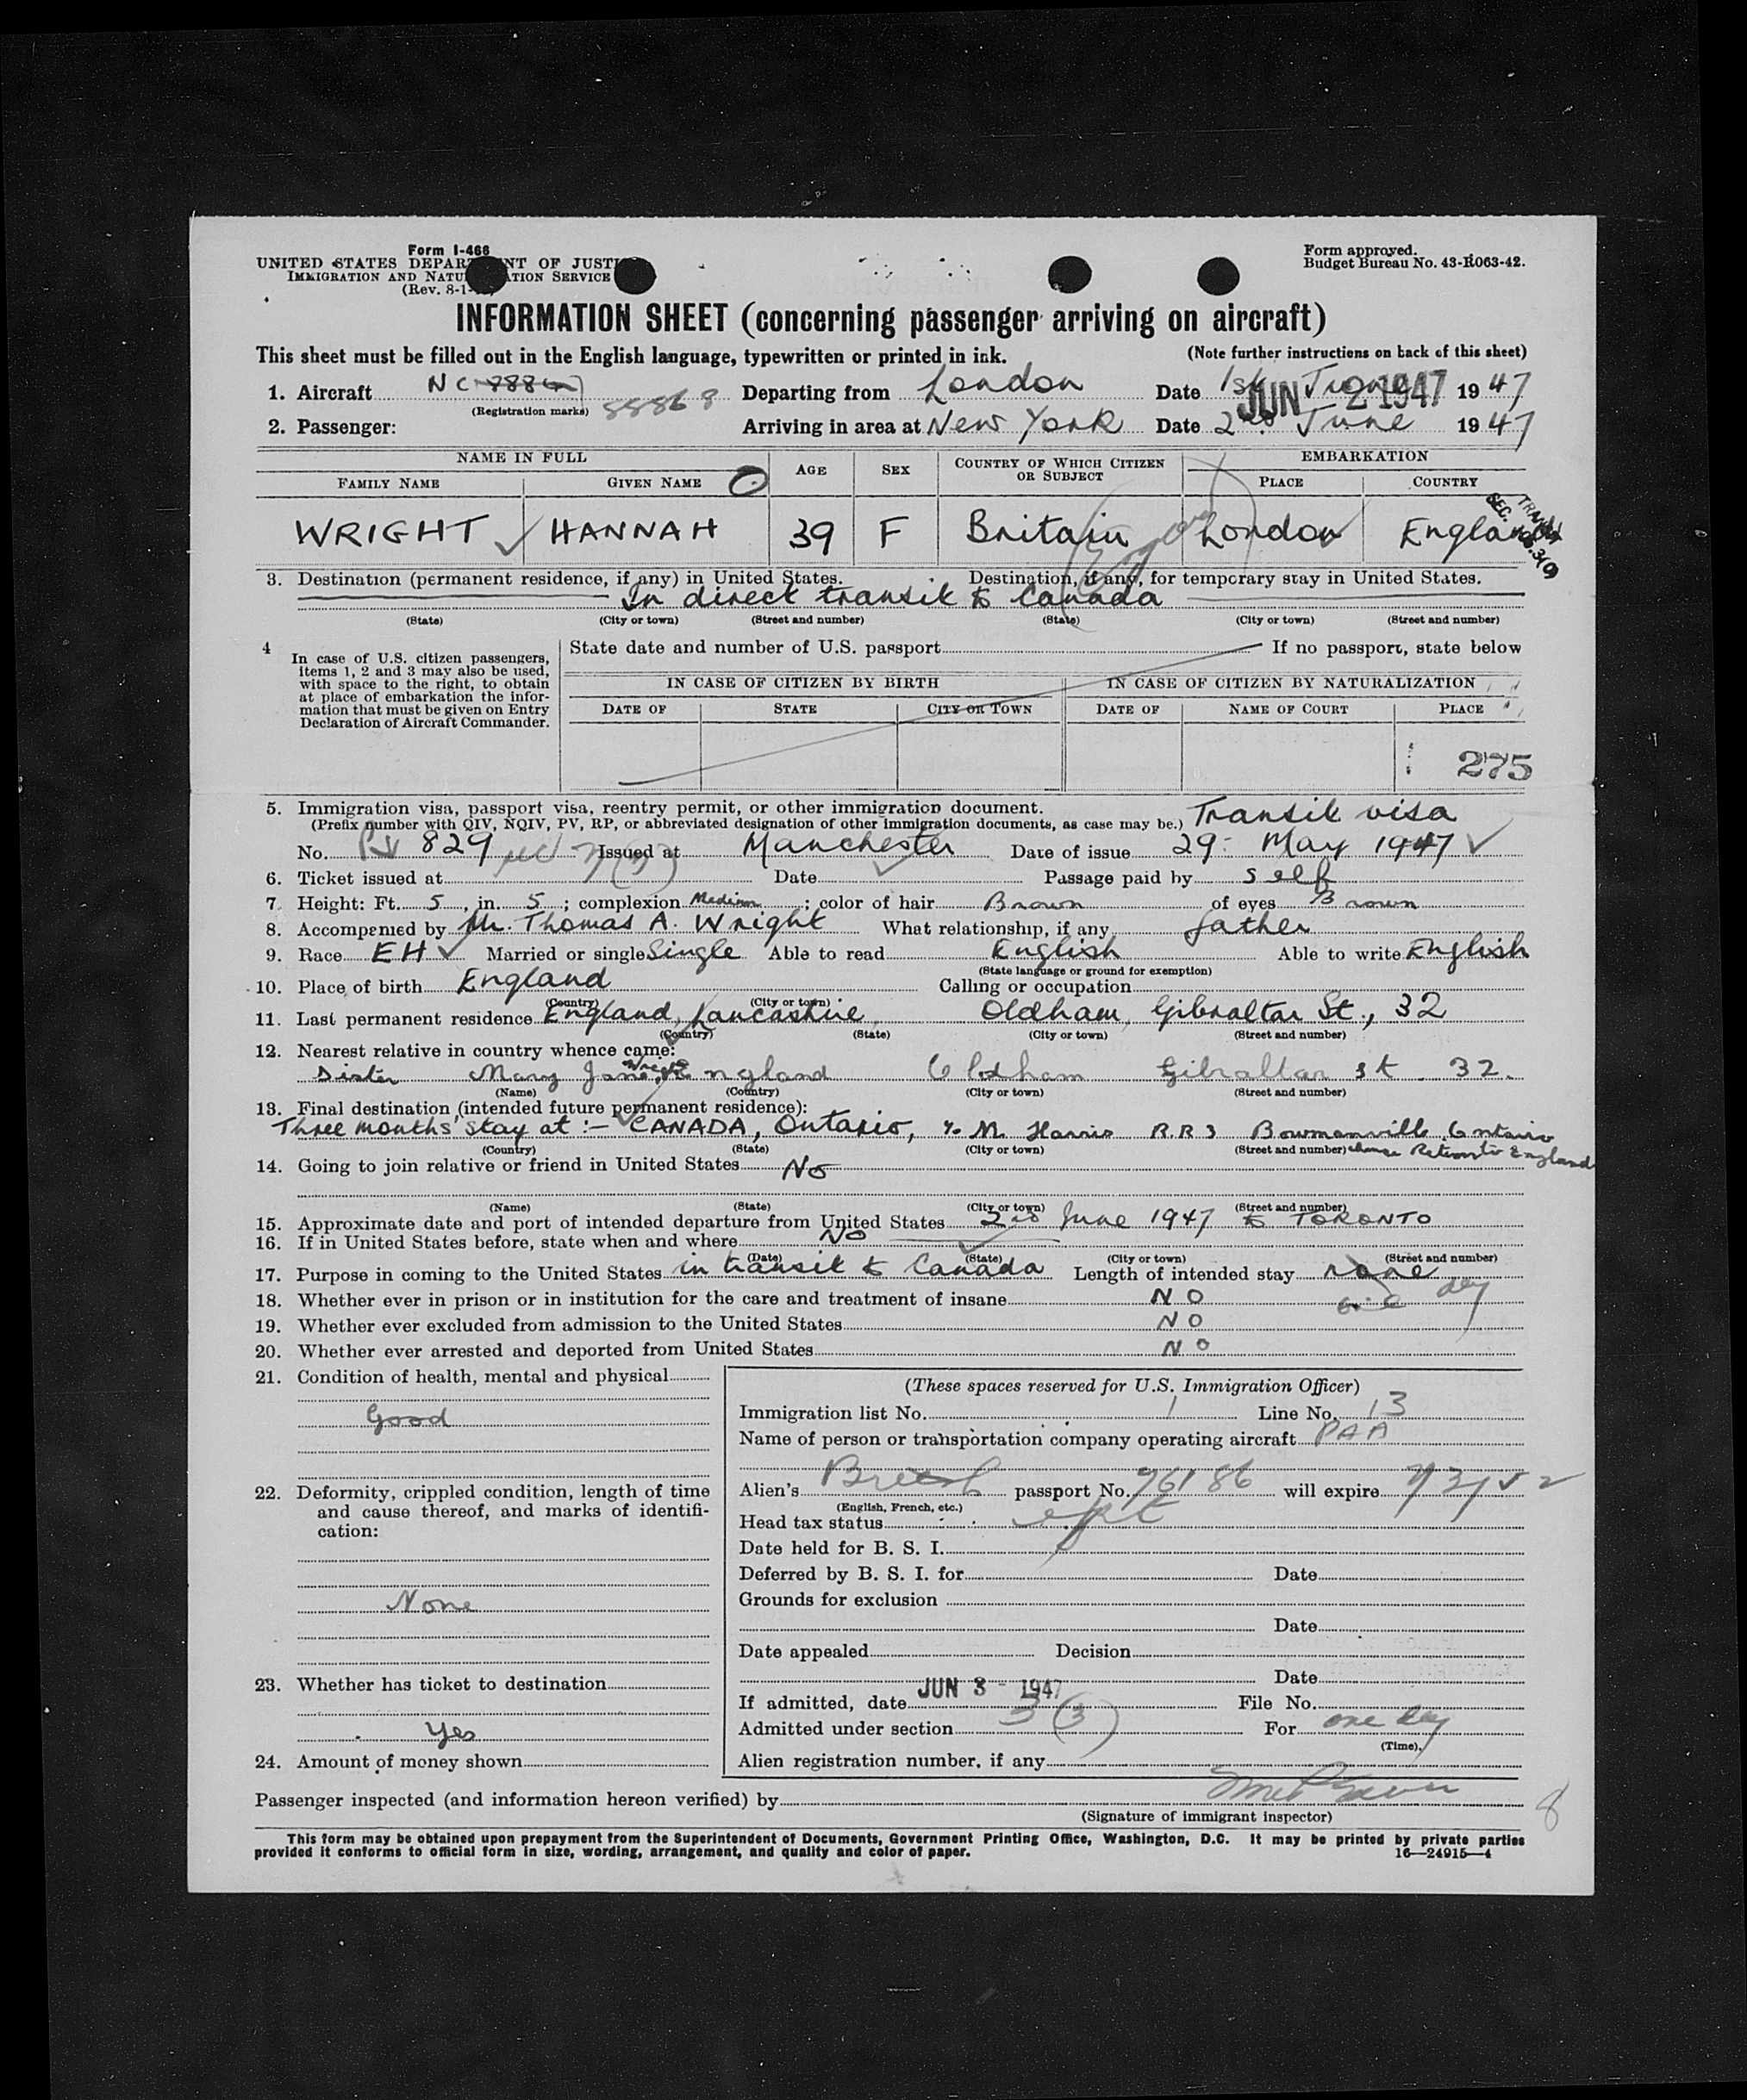 Form I-466
UNITED STATES DEPAR NT OF JUSTI
IMMIGRATION AND NATU ATION SERVICE
(Rev. 8-1-
Form approved.
Budget Bureau No. 43-R063-42.
INFORMATION SHEET (concerning passenger arriving on aircraft)
This sheet must be filled out in the English language, typewritten or printed in ink. (Note further instructions on back of this sheet)
1. Aircraft NC 88868 Departing from London Date 1st June 1947
(Registration marks)
JUN 2 1947
2. Passenger: Arriving in area at New York Date 2nd June 1947
NAME IN FULL AGE SEX COUNTRY OF WHICH CITIZEN OR SUBJECT EMBARKATION
FAMILY NAME GIVEN NAME PLACE COUNTRY
WRIGHT HANNAH 39 F Britain London England
3. Destination (permanent residence, if any) in United States. Destination, if any, for temporary stay in United States.
In direct transit to Canada
(State) (City or town) (Street and number) (State) (City or town) (Street and number)
4 In case of U.S. citizen passengers, items 1, 2 and 3 may also be used, with space to the right, to obtain at place of embarkation the information that must be given on Entry Declaration of Aircraft Commander.
State date and number of U.S. passport If no passport, state below
IN CASE OF CITIZEN BY BIRTH IN CASE OF CITIZEN BY NATURALIZATION
DATE OF STATE CITY OR TOWN DATE OF NAME OF COURT PLACE
275
5. Immigration visa, passport visa, reentry permit, or other immigration document.
(Prefix number with QIV, NQIV, PV, RP, or abbreviated designation of other immigration documents, as case may be.) Transit visa
No. 829 Issued at Manchester Date of issue 29 May 1947
6. Ticket issued at Date Passage paid by self
7. Height: Ft. 5, in. 5; complexion Medium; color of hair Brown of eyes Brown
8. Accompanied by Mr. Thomas A. Wright What relationship, if any father
9. Race EH Married or single Single Able to read English Able to write English
(State language or ground for exemption)
10. Place of birth England Calling or occupation
(Country) (City or town)
11. Last permanent residence England, Lancashire, Oldham, Gibraltar St., 32
(Country) (State) (City or town) (Street and number)
12. Nearest relative in country whence came:
Sister Mary Jane Wright England Oldham Gibraltar st 32.
(Name) (Country) (City or town) (Street and number)
13. Final destination (intended future permanent residence):
Three months' stay at :- CANADA, Ontario, % M. Harris R.R 3 Bowmanville Ontario
(Country) (State) (City or town) (Street and number) Return to England
14. Going to join relative or friend in United States No
(Name) (State) (City or town) (Street and number)
15. Approximate date and port of intended departure from United States 2nd June 1947 to TORONTO
16. If in United States before, state when and where NO
(Date) (State) (City or town) (Street and number)
17. Purpose in coming to the United States in transit to Canada Length of intended stay none
one day
18. Whether ever in prison or in institution for the care and treatment of insane NO
19. Whether ever excluded from admission to the United States NO
20. Whether ever arrested and deported from United States NO
21. Condition of health, mental and physical
Good
22. Deformity, crippled condition, length of time and cause thereof, and marks of identification:
None
23. Whether has ticket to destination
Yes
24. Amount of money shown
(These spaces reserved for U.S. Immigration Officer)
Immigration list No. 1 Line No. 13
Name of person or transportation company operating aircraft PAA
Alien's British passport No. 96186 will expire
(English, French, etc.)
Head tax status
Date held for B. S. I.
Deferred by B. S. I. for Date
Grounds for exclusion
Date
Date appealed Decision
Date
If admitted, date JUN 3 - 1947 File No.
Admitted under section 3 (3) For one day
(Time)
Alien registration number, if any
Passenger inspected (and information hereon verified) by
(Signature of immigrant inspector)
8
This form may be obtained upon prepayment from the Superintendent of Documents, Government Printing Office, Washington, D.C. It may be printed by private parties
provided it conforms to official form in size, wording, arrangement, and quality and color of paper. 16—24915-4